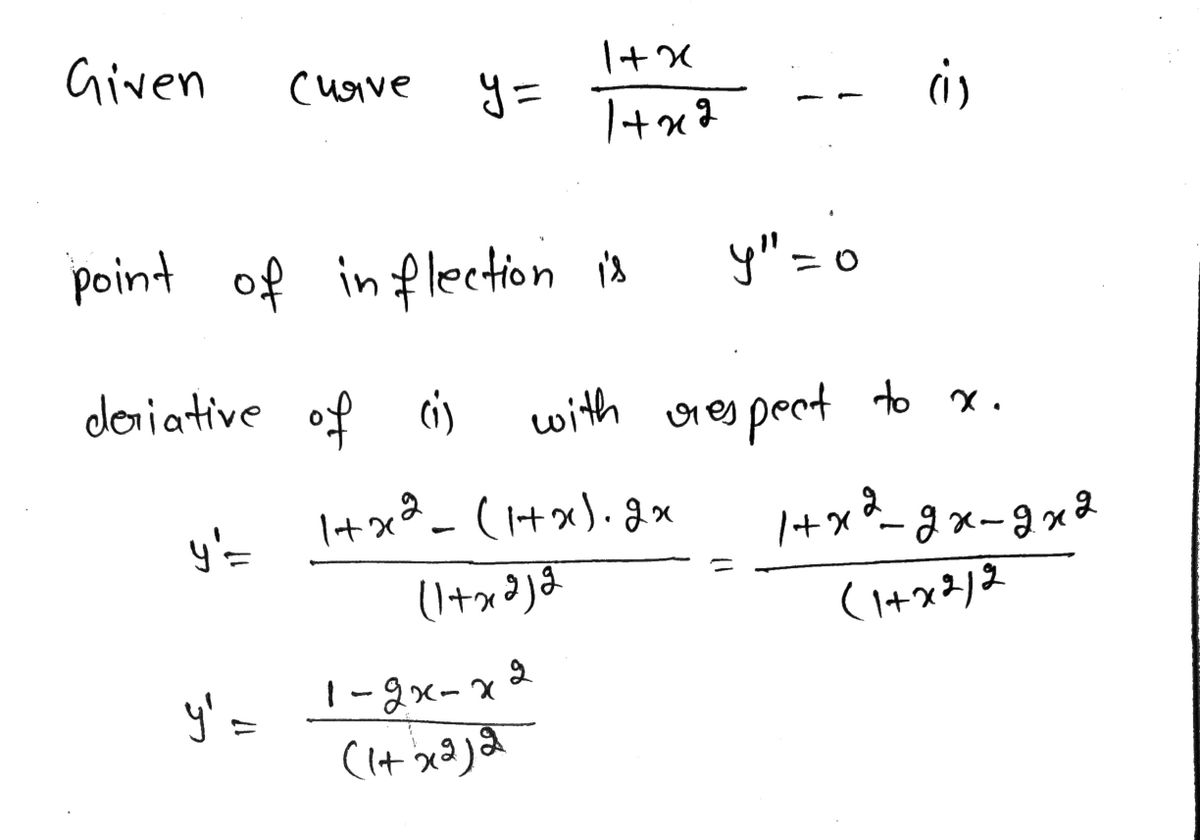 Given curve y = (1+x)/(1+x²) -- (i)
point of inflection is y'' = 0
deriative of (i) with respect to x.
y' = (1+x² - (1+x)·2x)/((1+x²)²) = (1+x²-2x-2x²)/((1+x²)²)
y' = (1-2x-x²)/((1+x²)²)